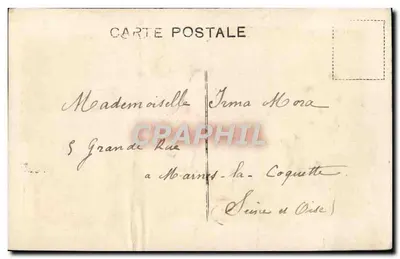 CARTE POSTALE
Mademoiselle Irma Mora
5 Grande Rue
a Marnes-la-Coquette
(Seine et Oise)
CPARAMA.COM